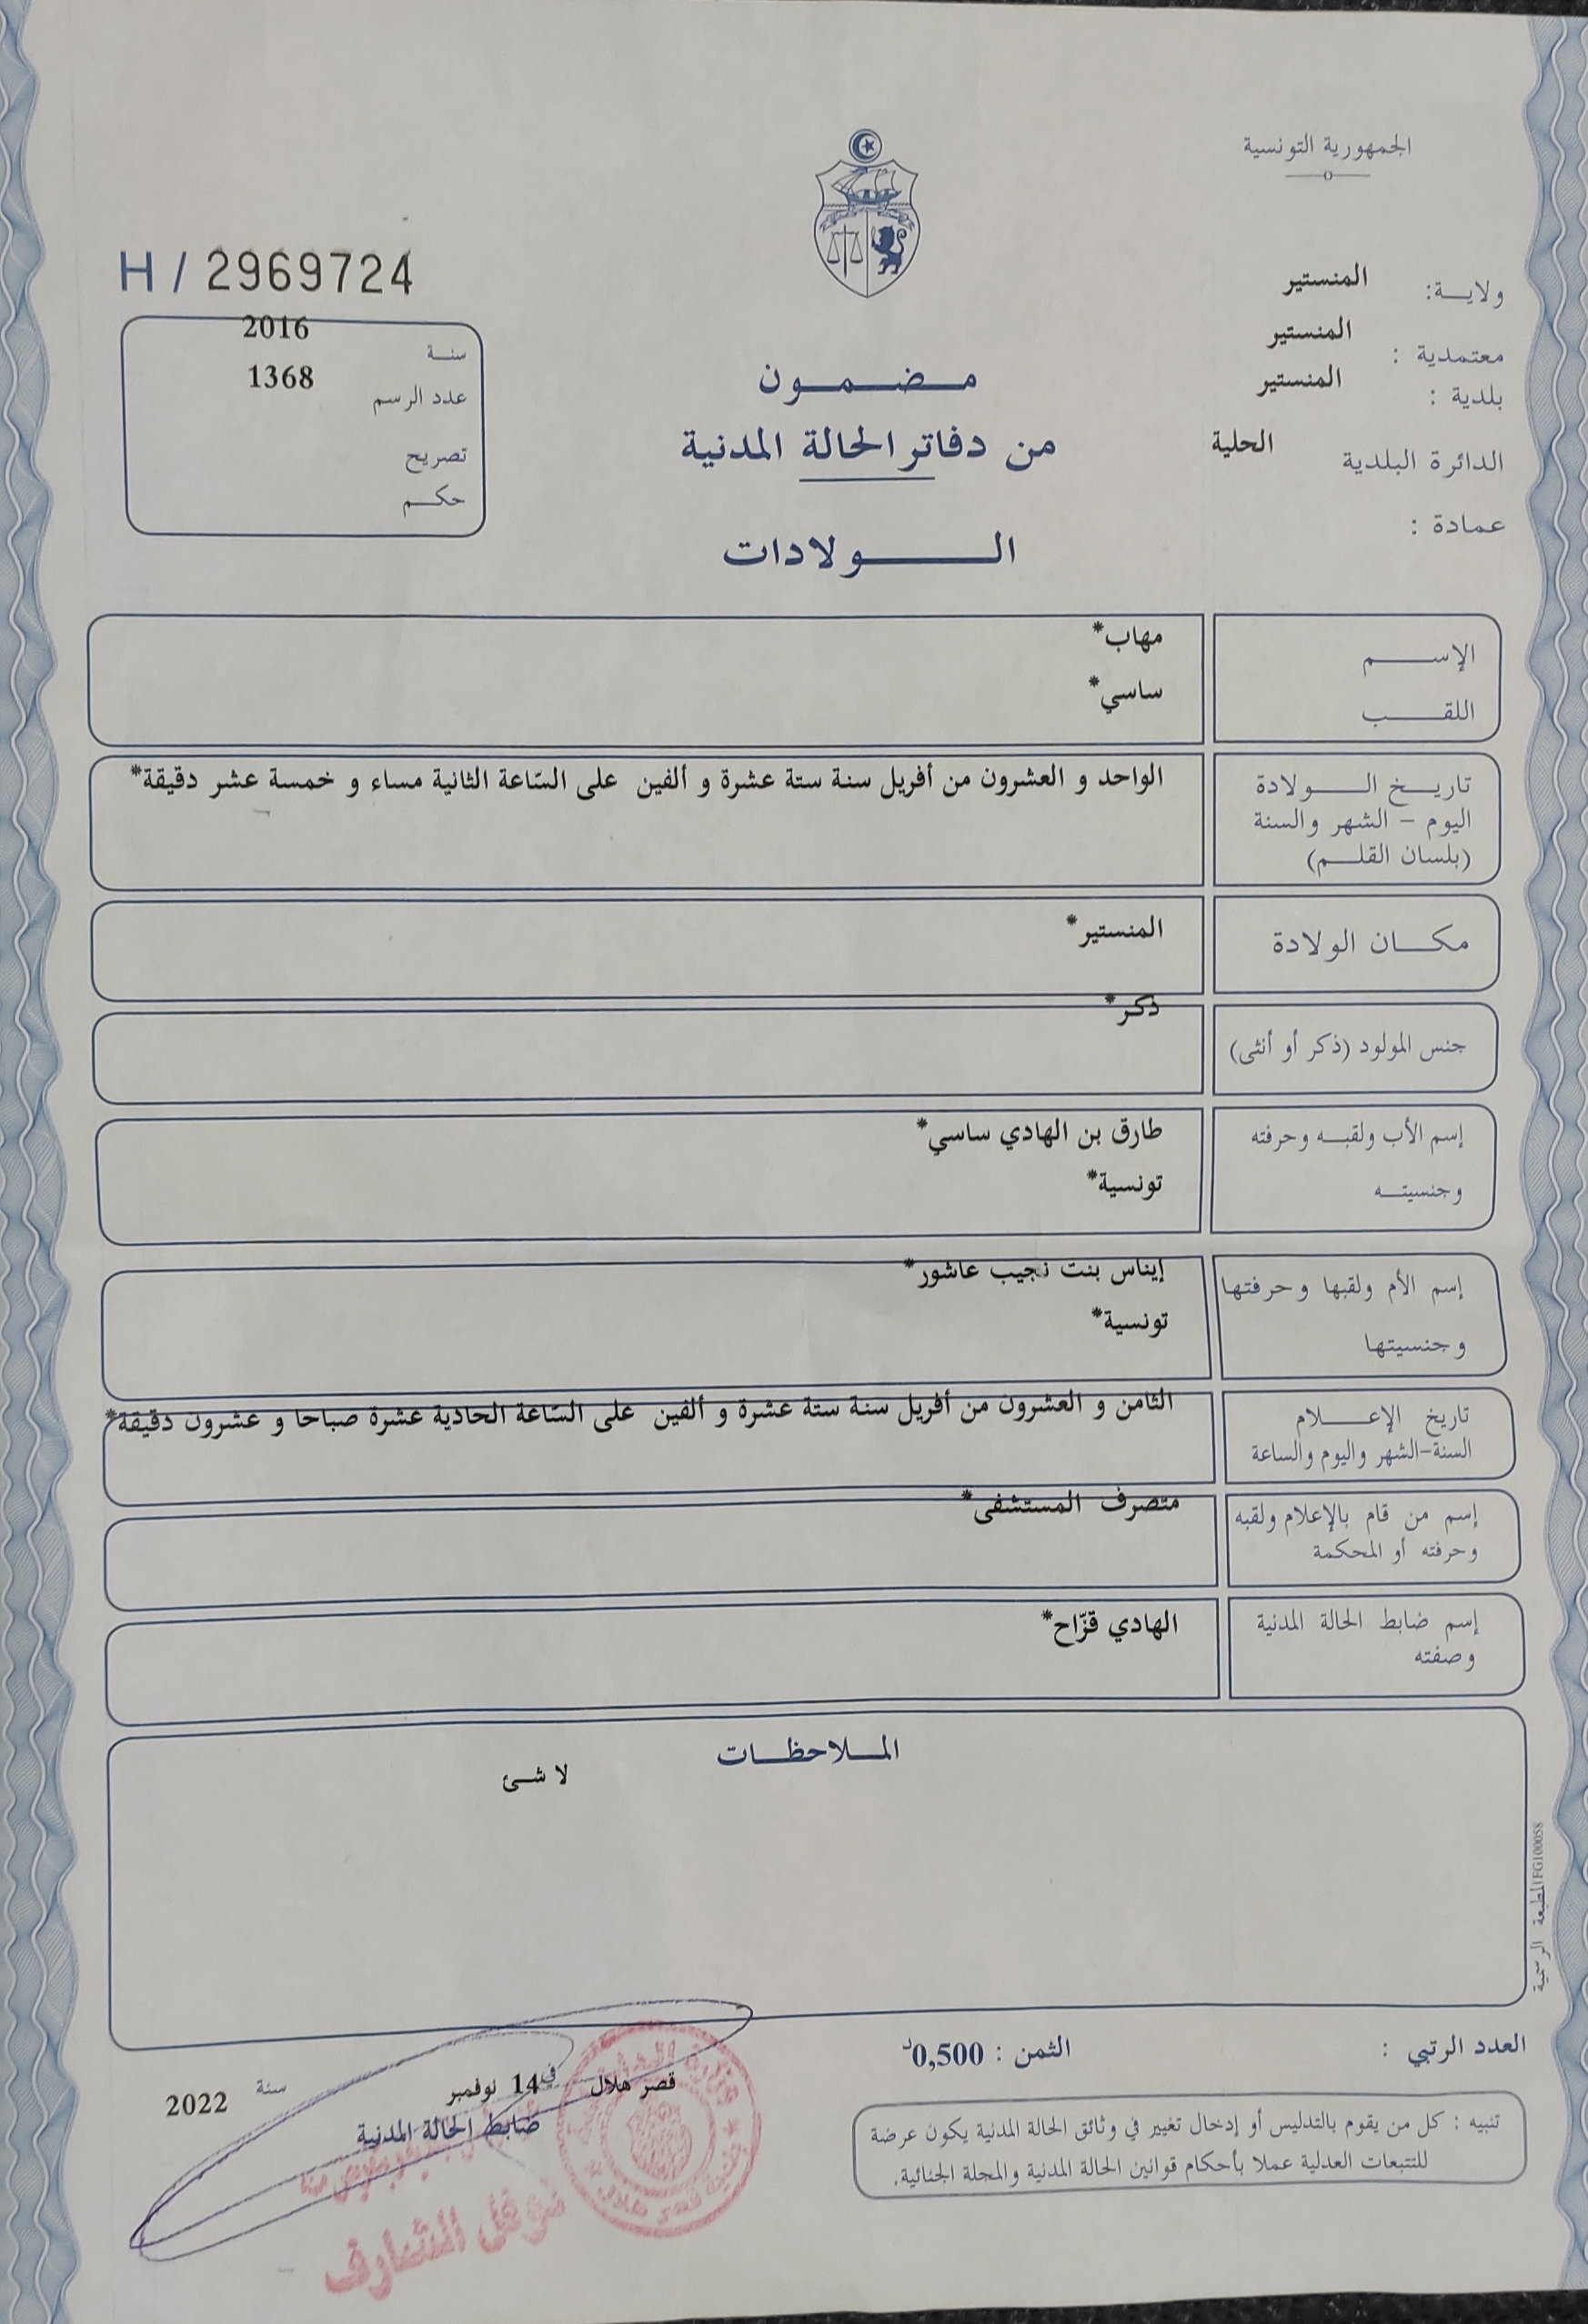 الجمهورية التونسية
ولاية: المنستير
معتمدية : المنستير
بلدية : المنستير
الدائرة البلدية الحلية
عمادة :
H / 2969724
سنة 2016
عدد الرسم 1368
تصريح
حكم
مضمون
من دفاتر الحالة المدنية
الولادات
الإسم مهاب*
اللقب ساسي*
تاريخ الولادة الواحد و العشرون من أفريل سنة ستة عشرة و ألفين على السّاعة الثانية مساء و خمسة عشر دقيقة*
اليوم - الشهر والسنة
(بلسان القلم)
مكان الولادة المنستير*
جنس المولود (ذكر أو أنثى) ذكر*
إسم الأب ولقبه وحرفته طارق بن الهادي ساسي*
وجنسيته تونسية*
إسم الأم ولقبها وحرفتها إيناس بنت نجيب عاشور*
وجنسيتها تونسية*
تاريخ الإعلام الثامن و العشرون من أفريل سنة ستة عشرة و ألفين على السّاعة الحادية عشرة صباحا و عشرون دقيقة*
السنة-الشهر واليوم والساعة
إسم من قام بالإعلام ولقبه متصرف المستشفى*
وحرفته أو المحكمة
إسم ضابط الحالة المدنية الهادي قزّاح*
وصفته
الملاحظات
لا شئ
المطبعة الرسمية FG100058
العدد الرتبي :
الثمن : 0,500د
قصر هلال في 14 نوفمبر سنة 2022
ضابط الحالة المدنية
نوفل الشارف
قصر هلال
تنبيه : كل من يقوم بالتدليس أو إدخال تغيير في وثائق الحالة المدنية يكون عرضة
للتتبعات العدلية عملا بأحكام قوانين الحالة المدنية والمجلة الجنائية.